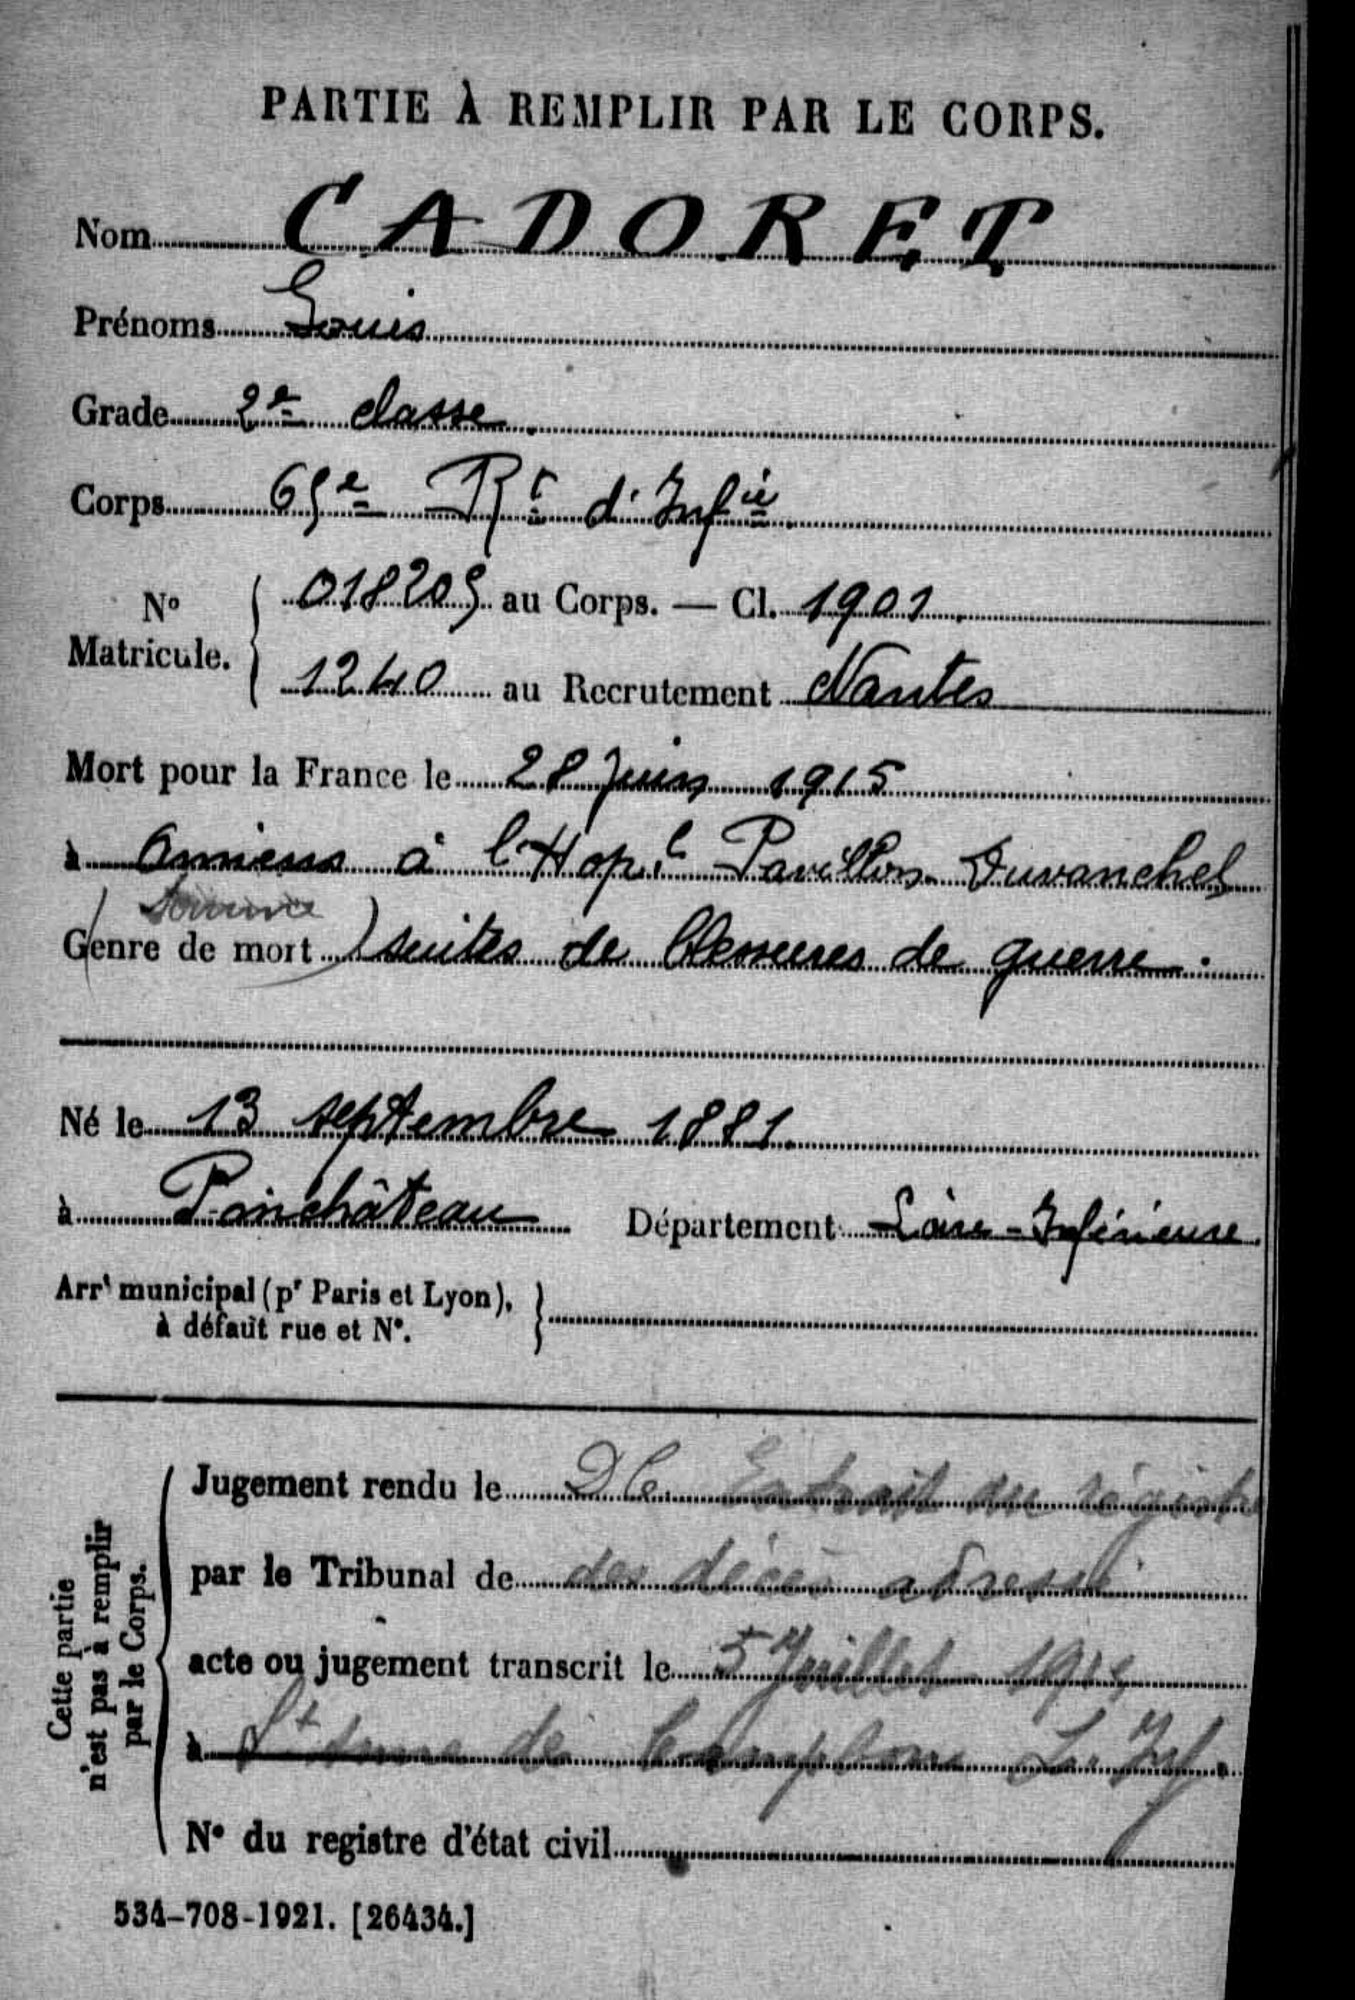 PARTIE À REMPLIR PAR LE CORPS.
Nom CADORET
Prénoms Louis
Grade 2e classe.
Corps 65e Rt d'Infie
No Matricule. 018205 au Corps. — Cl. 1901.
1240 au Recrutement Nantes
Mort pour la France le 28 Juin 1915
à Amiens à l'Hopl Pavillon Duvanchel
Somme
Genre de mort suites de blessures de guerre.
Né le 13 septembre 1881.
à Pontchâteau Département Loire-Inférieure.
Arrt municipal (pr Paris et Lyon),
à défaut rue et No.
Cette partie
n'est pas à remplir
par le Corps.
Jugement rendu le Extrait du régistre
par le Tribunal de des décès adressé
acte ou jugement transcrit le 5 Juillet
à St Anne de Campbon L. Inf.
No du registre d'état civil
534-708-1921. [26434.]